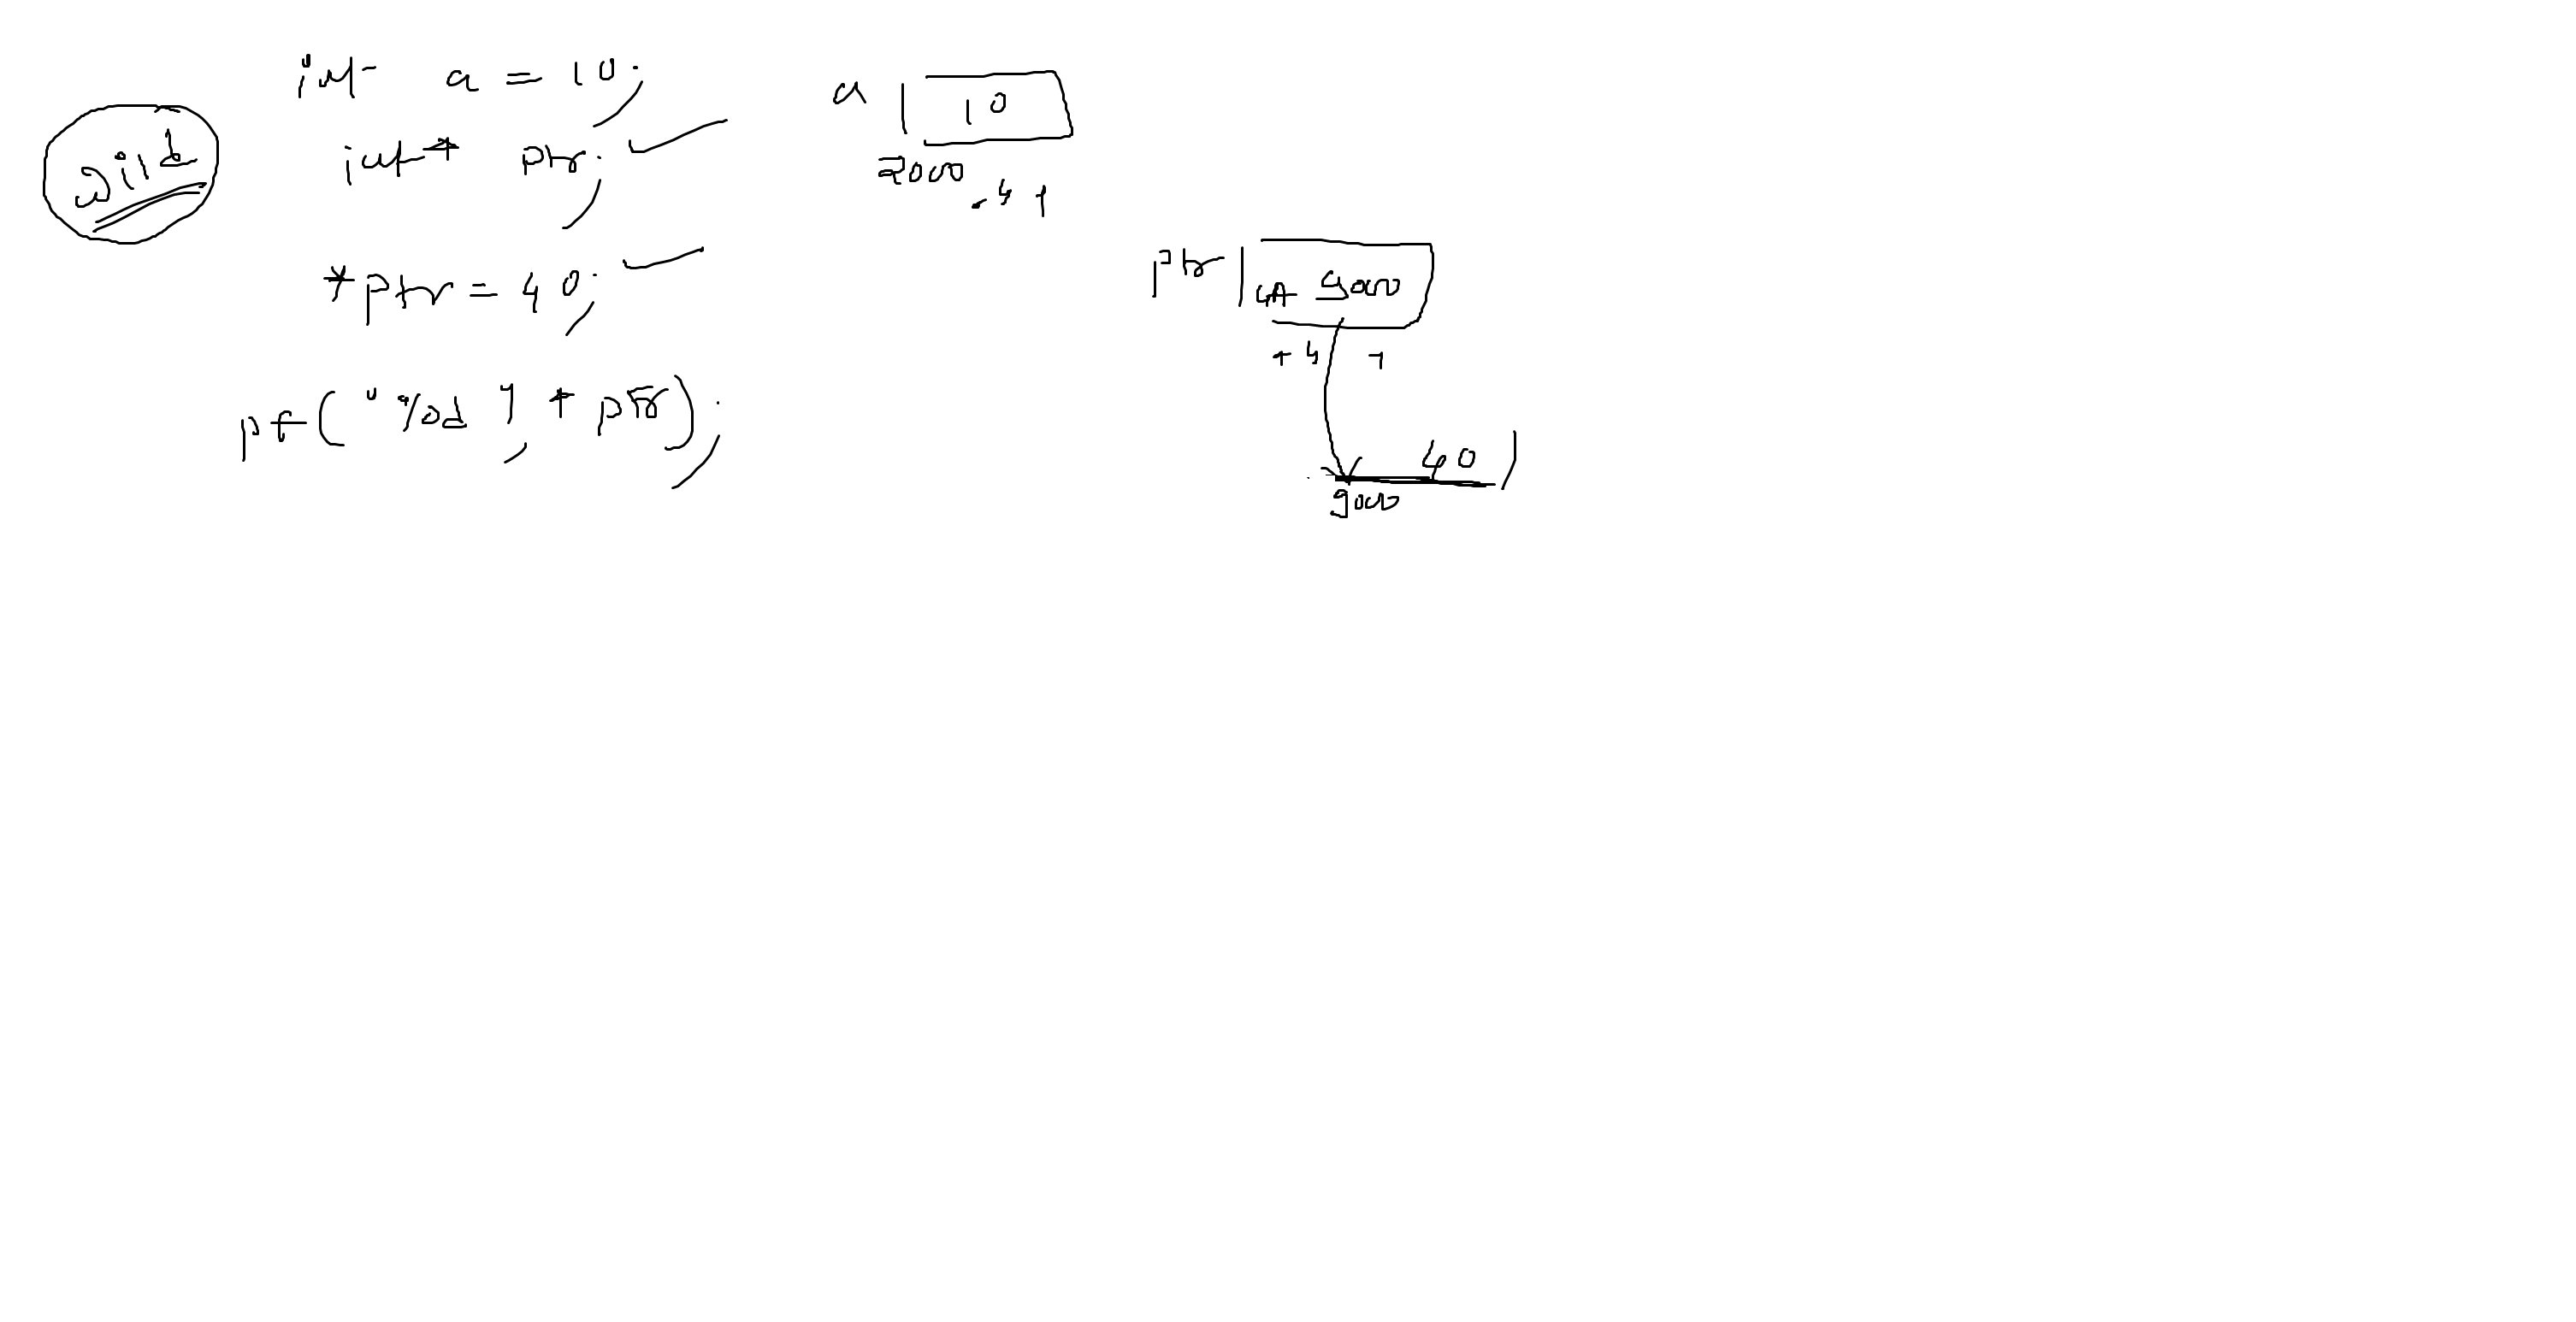 int a = 10;
wild
int* ptr;
*ptr = 40;
pf("%d", *ptr);
a 10
2000
ptr GA 9000
40
9000